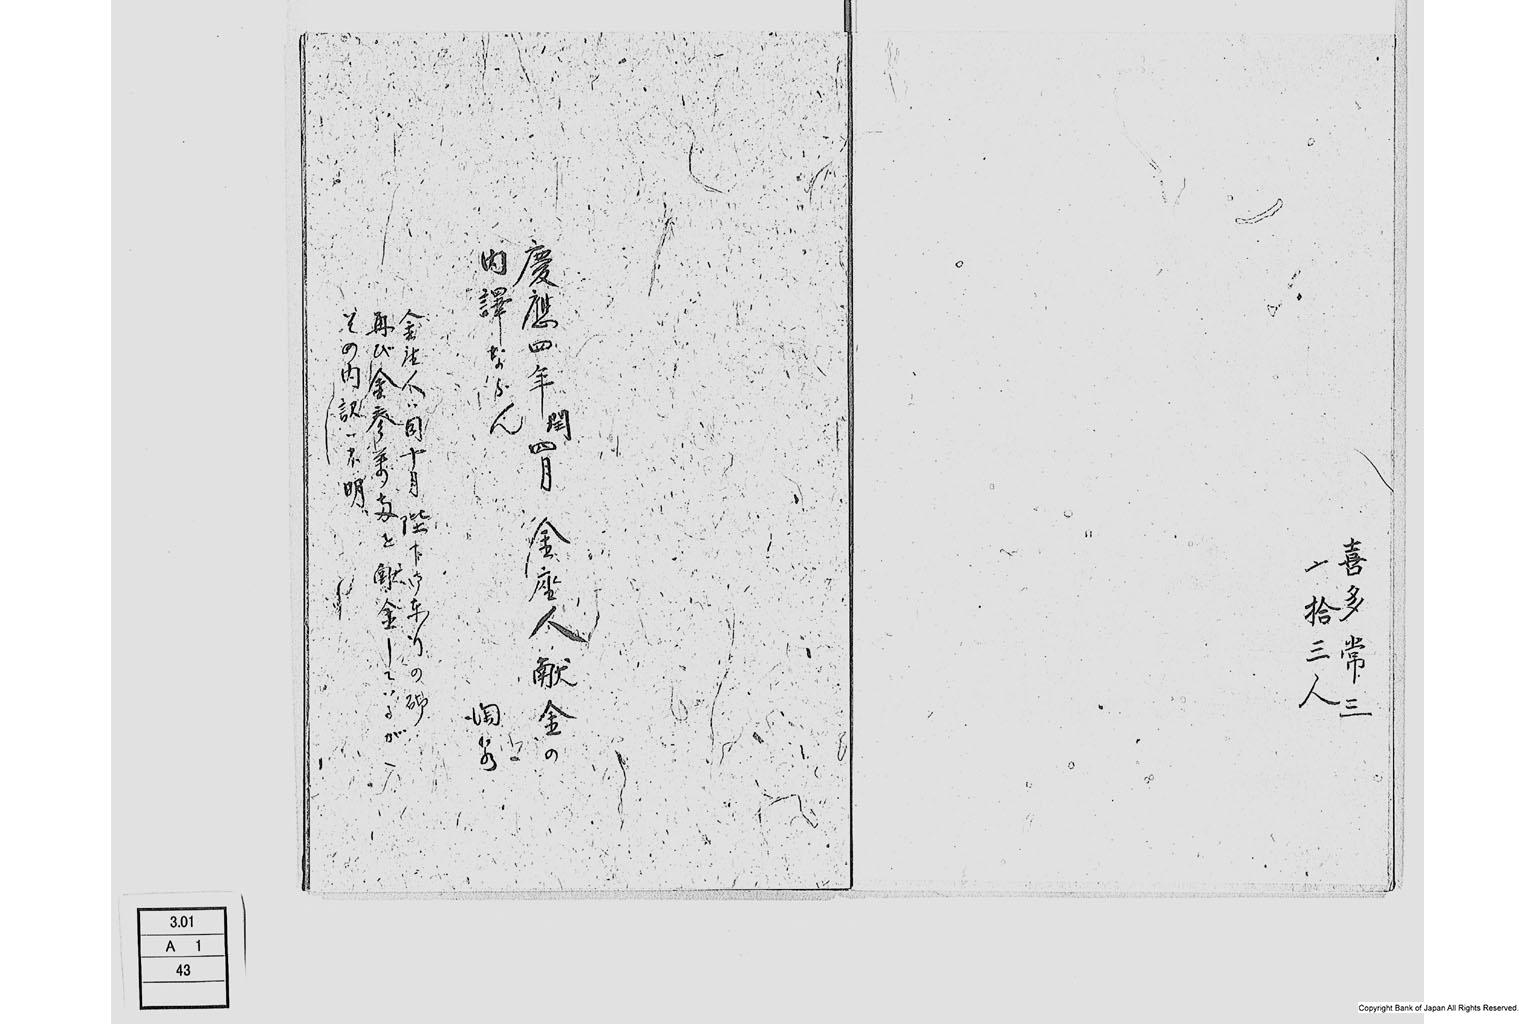 喜多常三
〆拾三人
慶應四年閏四月 金座人献金の
内譯ならん
陶泉
金座人ハ同十月陛下御東行の砌
再び金参萬両を献金しているが
その内訳ハ不明
3.01
A 1
43
Copyright Bank of Japan All Rights Reserved.